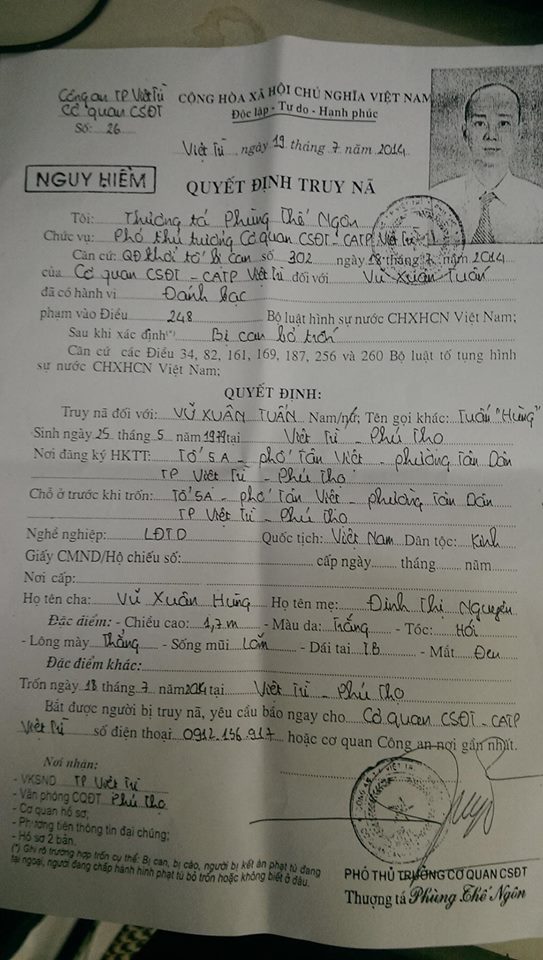 Công an TP Việt Trì
CỘNG HÒA XÃ HỘI CHỦ NGHĨA VIỆT NAM
Cơ quan CSĐT
Độc lập - Tự do - Hạnh phúc
Số: 26
Việt Trì, ngày 19 tháng 7 năm 2014
NGUY HIỂM
QUYẾT ĐỊNH TRUY NÃ
Tôi: Thượng tá Phùng Thế Ngôn
Chức vụ: Phó thủ trưởng Cơ quan CSĐT - CATP Việt Trì
Căn cứ: QĐ khởi tố bị can số 302 ngày 18 tháng 7 năm 2014
của Cơ quan CSĐT - CATP Việt Trì đối với Vũ Xuân Tuấn
đã có hành vi Đánh bạc
phạm vào Điều 248 Bộ luật hình sự nước CHXHCN Việt Nam;
Sau khi xác định(*) Bị can bỏ trốn
Căn cứ các Điều 34, 82, 161, 169, 187, 256 và 260 Bộ luật tố tụng hình
sự nước CHXHCN Việt Nam;
QUYẾT ĐỊNH:
Truy nã đối với: VŨ XUÂN TUẤN Nam/nữ; Tên gọi khác: Tuấn "Hùng"
Sinh ngày 25 tháng 5 năm 1979 tại Việt Trì - Phú Thọ
Nơi đăng ký HKTT: Tổ 5A - phố Tân Việt - phường Tân Dân
TP Việt Trì - Phú Thọ
Chỗ ở trước khi trốn: Tổ 5A - phố Tân Việt - phường Tân Dân
TP Việt Trì - Phú Thọ
Nghề nghiệp: LĐTD Quốc tịch: Việt Nam Dân tộc: Kinh
Giấy CMND/Hộ chiếu số: cấp ngày tháng năm
Nơi cấp:
Họ tên cha: Vũ Xuân Hùng Họ tên mẹ: Đinh Thị Nguyên
Đặc điểm: - Chiều cao: 1,7 m - Màu da: Trắng - Tóc: Hói
- Lông mày Thẳng - Sống mũi Lõm - Dái tai T.B - Mắt Đen
Đặc điểm khác:
Trốn ngày 18 tháng 7 năm 2014 tại Việt Trì - Phú Thọ
Bắt được người bị truy nã, yêu cầu báo ngay cho Cơ quan CSĐT - CATP
Việt Trì số điện thoại 0912.156.917 hoặc cơ quan Công an nơi gần nhất.
Nơi nhận:
- VKSND TP Việt Trì
- Văn phòng CQĐT Phú Thọ
- Cơ quan hồ sơ;
- Phương tiện thông tin đại chúng;
- Hồ sơ 2 bản.
(*) Ghi rõ trường hợp trốn cụ thể: Bị can, bị cáo, người bị kết án phạt tù đang
tại ngoại, người đang chấp hành hình phạt tù bỏ trốn hoặc không biết ở đâu.
PHÓ THỦ TRƯỞNG CƠ QUAN CSĐT
Thượng tá Phùng Thế Ngôn